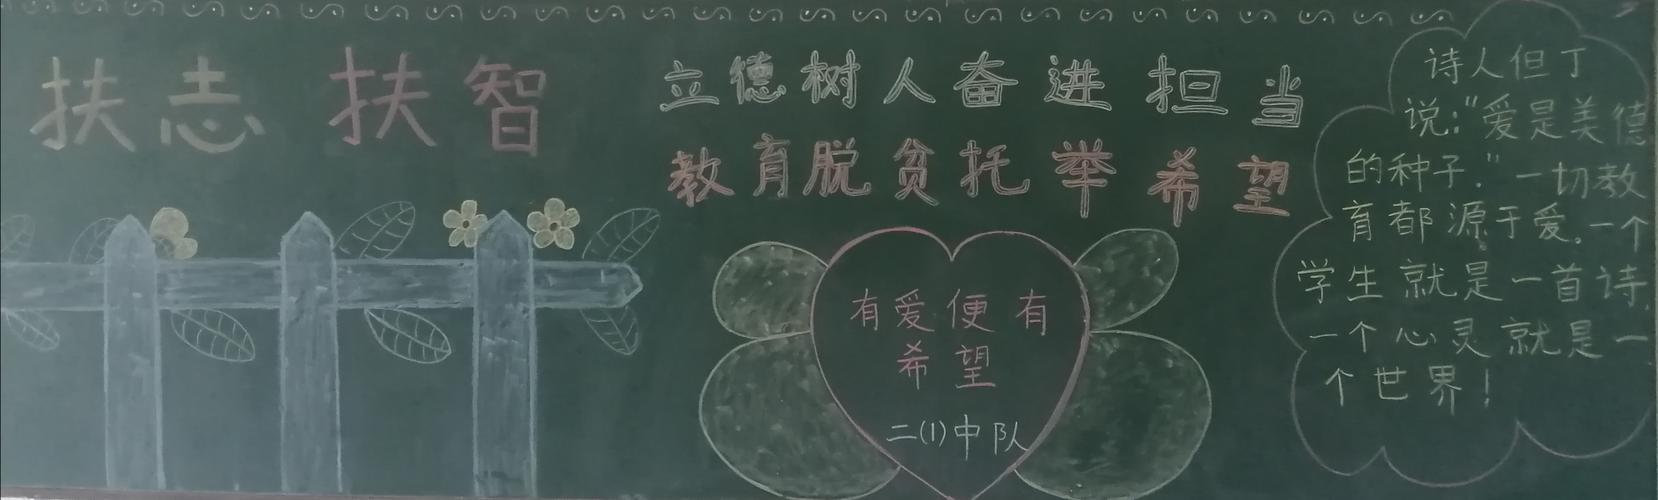 扶志 扶智
立德树人奋进担当
教育脱贫托举希望
有爱便有
希望
二(1)中队
诗人但丁
说:"爱是美德
的种子."一切教
育都源于爱。一个
学生就是一首诗,
一个心灵就是一
个世界!